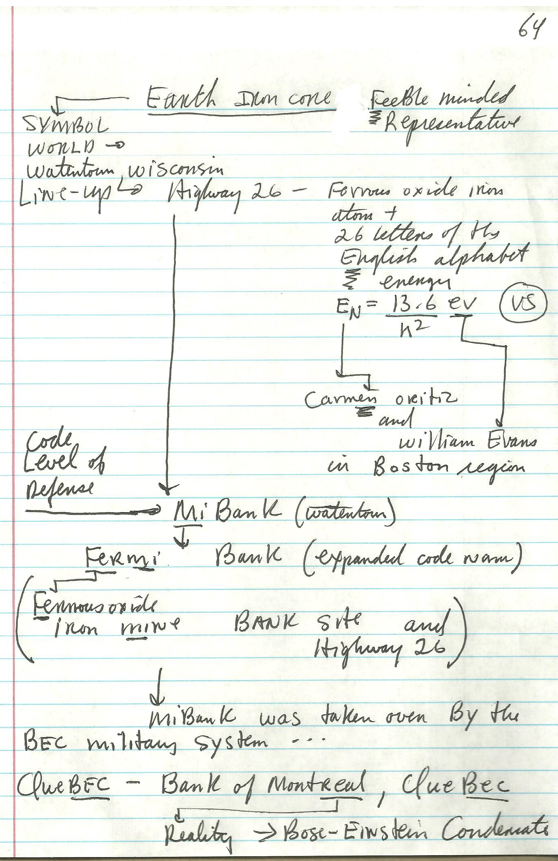 64
Earth Iron core
Feeble minded
Representative
SYMBOL
WORLD →
Watertown, Wisconsin
Line-up → Highway 26 — Ferrous oxide iron
atom +
26 letters of the
English alphabet
energy
E_N = 13.6 ev VS
n²
Carmen
and
William Evans
in Boston region
Code
Level of
Defense
Mi Bank (watertown)
Fermi Bank (expanded code nam)
(Ferrous oxide
iron mine BANK site and
Highway 26)
MiBank was taken over By the
BEC military system ...
QueBEC — Bank of Montreal, QueBec
Reality → Bose-Einstein Condensate